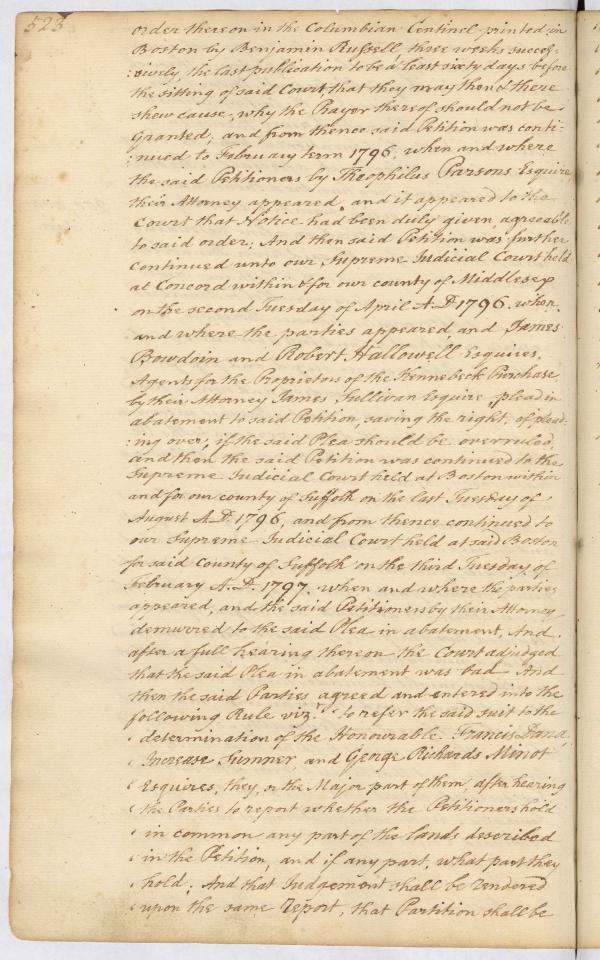 523
order thereon in the Columbian Centinel printed in
Boston by Benjamin Russell three weeks succes-
:sively, the last publication to be a least sixty days before
the sitting of said Court that they may then & there
shew cause, why the Prayer thereof should not be
Granted, and from thence said Petition was conti-
:nued to February term 1796, when and where
the said Petitioners by Theophilus Parsons Esquire
their Attorney appeared, and it appeared to the
Court that Notice had been duly given, agreeable
to said order; And then said Petition was further
continued unto our Supreme Judicial Court held
at Concord within & for our county of Middlesex
on the second Tuesday of April A.D. 1796. when
and where the parties appeared and James
Bowdoin and Robert Hallowell Esquires,
Agents for the Proprietors of the Kennebeck Purchase
by their Attorney James Sullivan Esquire plead in
abatement to said Petition, saving the right, of plead-
:ing over, if the said Plea should be overruled,
and then the said Petition was continued to the
Supreme Judicial Court held at Boston within
and for our county of Suffolk on the last Tuesday of
August A.D. 1796, and from thence continued to
our Supreme Judicial Court held at said Boston
for said County of Suffolk on the third Tuesday of
February A.D. 1797. when and where the parties
appeared, and the said Petitioners by their Attorney
demurred to the said Plea in abatement, And
after a full hearing thereon the Court adjudged
that the said Plea in abatement was bad And
then the said Parties agreed and entered into the
following Rule vizt. "to refer the said suit to the
" determination of the Honourable Francis Dana,
" Increase Sumner and George Richards Minot
" Esquires, they, or the Major part of them, after hearing
" the Parties to report whether the Petitioners hold
" in common any part of the lands described
" in the Petition, and if any part, what part they
" hold; And that Judgement shall be rendered
" upon the same report, that Partition shall be